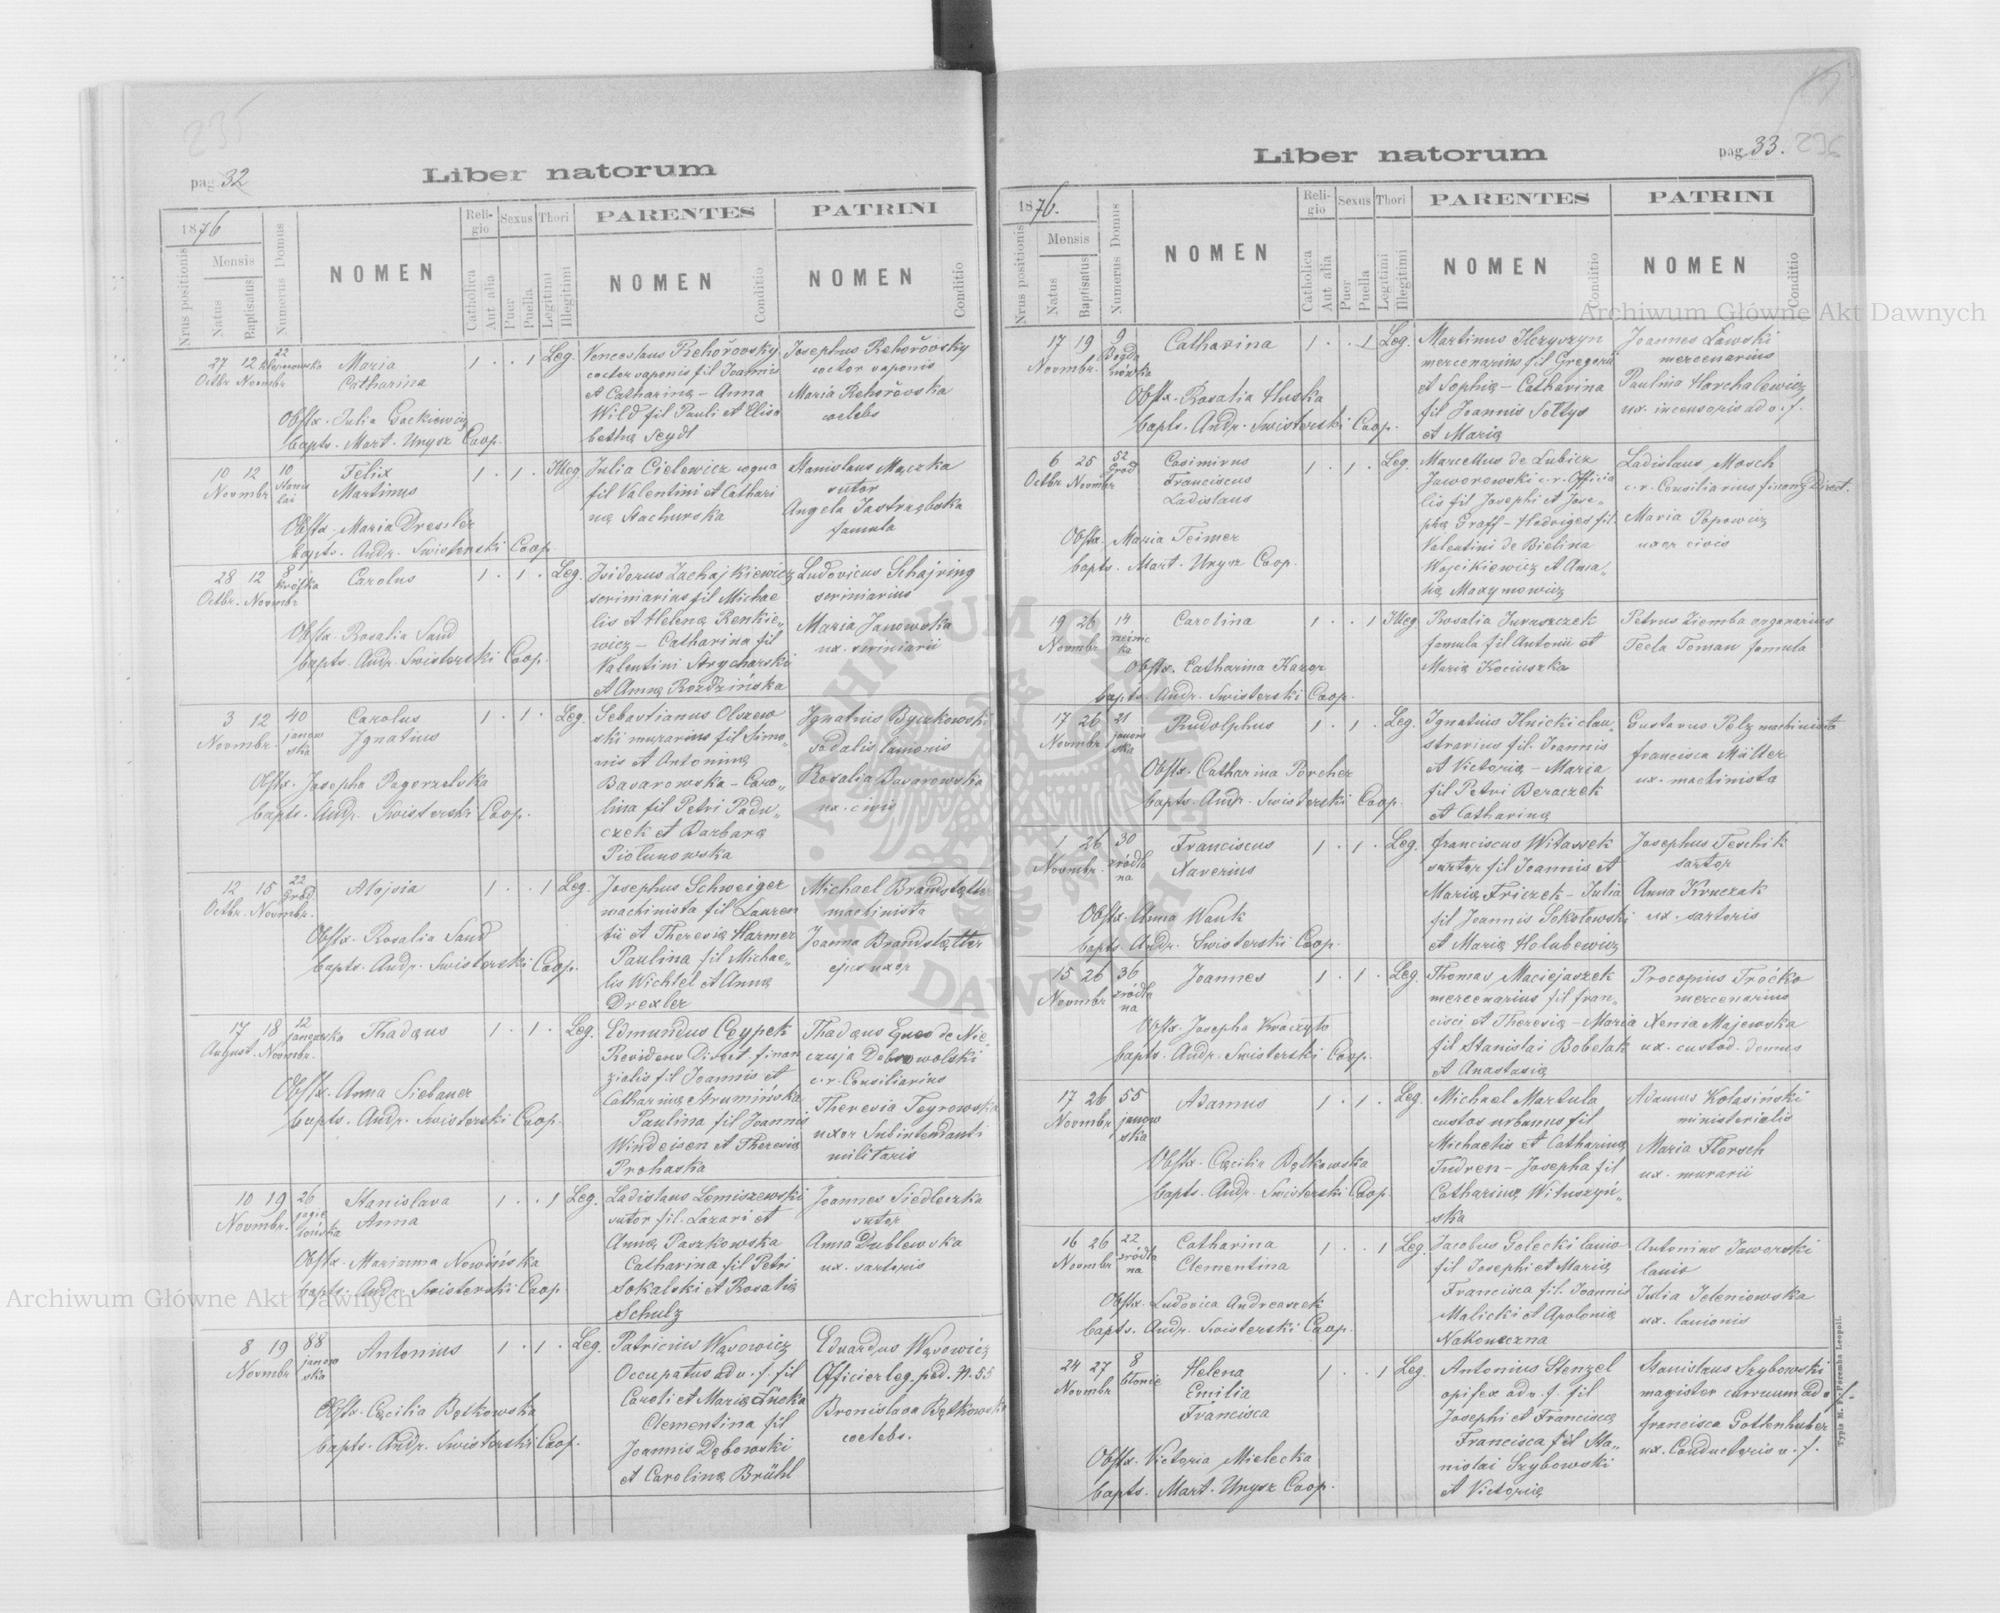 235
pag. 32
Liber natorum
1876
Nrus positionis
Mensis
Natus
Baptisatus
Numerus Domus
NOMEN
Religio
Catholica
Aut alia
Sexus
Puer
Puella
Thori
Legitimi
Illegitimi
PARENTES
NOMEN
Conditio
PATRINI
NOMEN
Conditio
27 12 22
Octbr Novmbr
Maria
Catharina
1 . . 1 Leg.
Obstx. Julia Gockiewicz
bapts. Mart. Unysz Coop.
Venceslaus Rehořovsky
coctor saponis fil Joannis
et Catharinę – Anna
Wild fil Pauli et Elisa
bethę Seydl
Josephus Rehořovsky
coctor saponis
Maria Rehořovska
coelebs
10 12 10
Novmbr Stanis
lai
Felix
Martinus
1 . 1 . Illeg
Obstx. Maria Drexler
bapts. Andr. Swisterski Coop
Julia Cielewicz coqua
fil Valentini et Cathari
nę Stachurska
Stanislaus Mączka
sutor
Angela Jastrzębska
famula
28 12 8
Octbr. Novmbr
Carolus
1 . 1 . Leg.
Obstx. Rosalia Sand
bapts. Andr. Swisterski Coop.
Isidorus Zachajkiewicz
scriniarius fil Michae
lis et Helenę Renkie„
wicz – Catharina fil
Valentini Strycharski
et Annę Rozdzińska
Ludovicus Schajring
scriniarius
Maria Janowska
ux. scriniarii
3 12 40
Novmbr. janow
ska
Carolus
Ignatius
1 . 1 . Leg.
Obstx. Josepha Pagorzelska
bapts. Andr. Swisterski Coop.
Sebastianus Olszew
ski murarius fil Simo„
nis et Antoninę
Bavarowska – Caro„
lina fil Petri Padu„
czek et Barbarę
Piotunowska
Ignatius Byczkowski
sodalis lanionis
Rosalia Bavarowska
ux. civis
12 15 22
Octbr. Novmbr. Gród
Alojsia
1 . . 1 Leg.
Obstx. Rosalia Sand
bapts. Andr. Swisterski Coop.
Josephus Schweiger
machinista fil Lauren
tii et Theresię Harmer
Paulina fil Michae„
lis Wichtel et Annę
Drexler
Michael Brandstętter
machinista
Joanna Brandstętter
ejus uxor
17 18 12
August. Novmbr. janowska
Thadęus
1 . 1 . Leg.
Obstx. Anna Siebauer
bapts. Andr. Swisterski Coop.
Edmundus Cypek
Revidens Direct finan
zialis fil Joannis et
Catharinę Strumińska
Paulina fil Joannis
Windeisen et Theresię
Prohaska
Thadęus Eques de Nie„
czuja Dobrowolski
c. r. Consiliarius
Theresia Teyrowska
uxor Subintendanti
militaris
10 19 26
Novmbr. jagie
lońska
Stanislava
Anna
1 . . 1 Leg.
Obstx. Marianna Nowińska
bapts. Andr. Swisterski Coop
Ladislaus Lemiszewski
sutor fil. Lazari et
Annę Paszkowska
Catharina fil Petri
Sokalski et Rosalię
Schulz
Joannes Siedleczka
sutor
Anna Dublewska
ux. sartoris
8 19 88
Novmbr janow
ska
Antonius
1 . 1 . Leg.
Obstx. Cęcilia Bętkowska
bapts. Andr. Swisterski Coop.
Patricius Wąsowicz
Occupatus ad v. f. fil
Caroli et Marię Łucka
Clementina fil
Joannis Dębowski
et Carolinę Brühl
Eduardus Wąsowicz
Officier leg. ped. N. 55
Bronislava Bętkowska
coelebs.
pag. 33. 236
Liber natorum
1876.
Nrus positionis
Mensis
Natus
Baptisatus
Numerus Domus
NOMEN
Religio
Catholica
Aut alia
Sexus
Puer
Puella
Thori
Legitimi
Illegitimi
PARENTES
NOMEN
Conditio
PATRINI
NOMEN
Conditio
17 19 9
Novmbr. Bogda
nówka
Catharina
1 . . 1 Leg.
Obstx. Rosalia Huska
bapts. Andr. Swisterski Coop.
Martinus Hryszyn
mercenarius fil Gregorii
et Sophię – Catharina
fil Joannis Soltys
et Marię
Joannes Ławski
mercenarius
Paulina Horchalewicz
ux. incensoris ad v. f.
6 25 52
Octbr Novmbr Gród
Casimirus
Franciscus
Ladislaus
1 . 1 . Leg.
Obstx. Maria Teimer
bapts. Mart. Unysz Coop.
Marcellus de Lubicz
Jaworowski c. r. Officia
lis fil Josephi et Jose„
phę Graff – Hedviges fil.
Valentini de Bielina
Wojcikiewicz et Anna„
nę Maxymowicz
Ladislaus Mosch
c. r. Consiliarius finanz Direct.
Maria Popowicz
uxor civis
19 26 14
Novmbr
Carolina
1 . . 1 Illeg
Obstx. Catharina Kazor
bapts. Andr. Swisterski Coop.
Rosalia Juruszczek
famula fil Antonii et
Marię Kociuszka
Petrus Ziemba organarius
Tecla Toman famula
17 26 21
Novmbr janow
ska
Rudolphus
1 . 1 . Leg.
Obstx. Catharina Porcher
bapts. Andr. Swisterski Coop.
Ignatius Ilnicki clau„
strarius fil. Joannis
et Victorię – Maria
fil Petri Beraczek
et Catharinę
Gustavus Pelz machinista
francisca Müller
ux. machinista
1 26 30
Novmbr. źródla
na
Franciscus
Xaverius
1 . 1 . Leg.
Obstx. Anna Wank
bapts. Andr. Swisterski Coop.
franciscus Witassek
sartor fil Joannis et
Marię Friczek – Julia
fil Joannis Sokołowski
et Marię Holubewicz
Josephus Teschik
sartor
Anna Kruczak
ux. sartoris
15 26 36
Novmbr źródla
na
Joannes
1 . 1 . Leg.
Obstx. Josepha Kraczyło
bapts. Andr. Swisterski Coop.
Thomas Maciejaszek
mercenarius fil fran„
cisci et Theresię – Maria
fil Stanislai Bobelak
et Anastasię
Procopius Tróćko
mercenarius
Xenia Majewska
ux. custod. domus
17 26 55
Novmbr janow
ska
Adamus
1 . 1 . Leg.
Obstx. Cęcilia Bętkowska
bapts. Andr. Swisterski Coop.
Michael Martula
custos urbanus fil
Michaelis et Catharinę
Tudren – Josepha fil
Catharinę Wituszyń„
ska
Adamus Kolasiński
ministerialis
Maria Florsch
ux. murarii
16 26 22
Novmbr źródla
na
Catharina
Clementina
1 . . 1 Leg.
Obstx. Ludovica Andreaszek
bapts. Andr. Swisterski Coop.
Jacobus Golecki lanio
fil Josephi et Marię
Francisca fil. Joannis
Malicki et Apolonię
Nakoneczna
Antonius Jaworski
lanio
Julia Jeleniowska
ux. lanionis
24 27 8
Novmbr błonie
Helena
Emilia
Francisca
1 . . 1 Leg
Obstx. Victoria Mielecka
bapts. Mart. Unysz Coop.
Antonius Stenzel
opifex ad v. f. fil
Josephi et Franciscę
Francisca fil Sta„
nislai Szybowski
et Victorię
Stanislaus Szybowski
magister curruum ad v. f.
francisca Gottenhuber
ux. Conductoris v. f.
Typis M. F. Poremba Leopoli.
Archiwum Główne Akt Dawnych
Archiwum Główne Akt Dawnych
ARCHIWUM GŁÓWNE AKT DAWNYCH